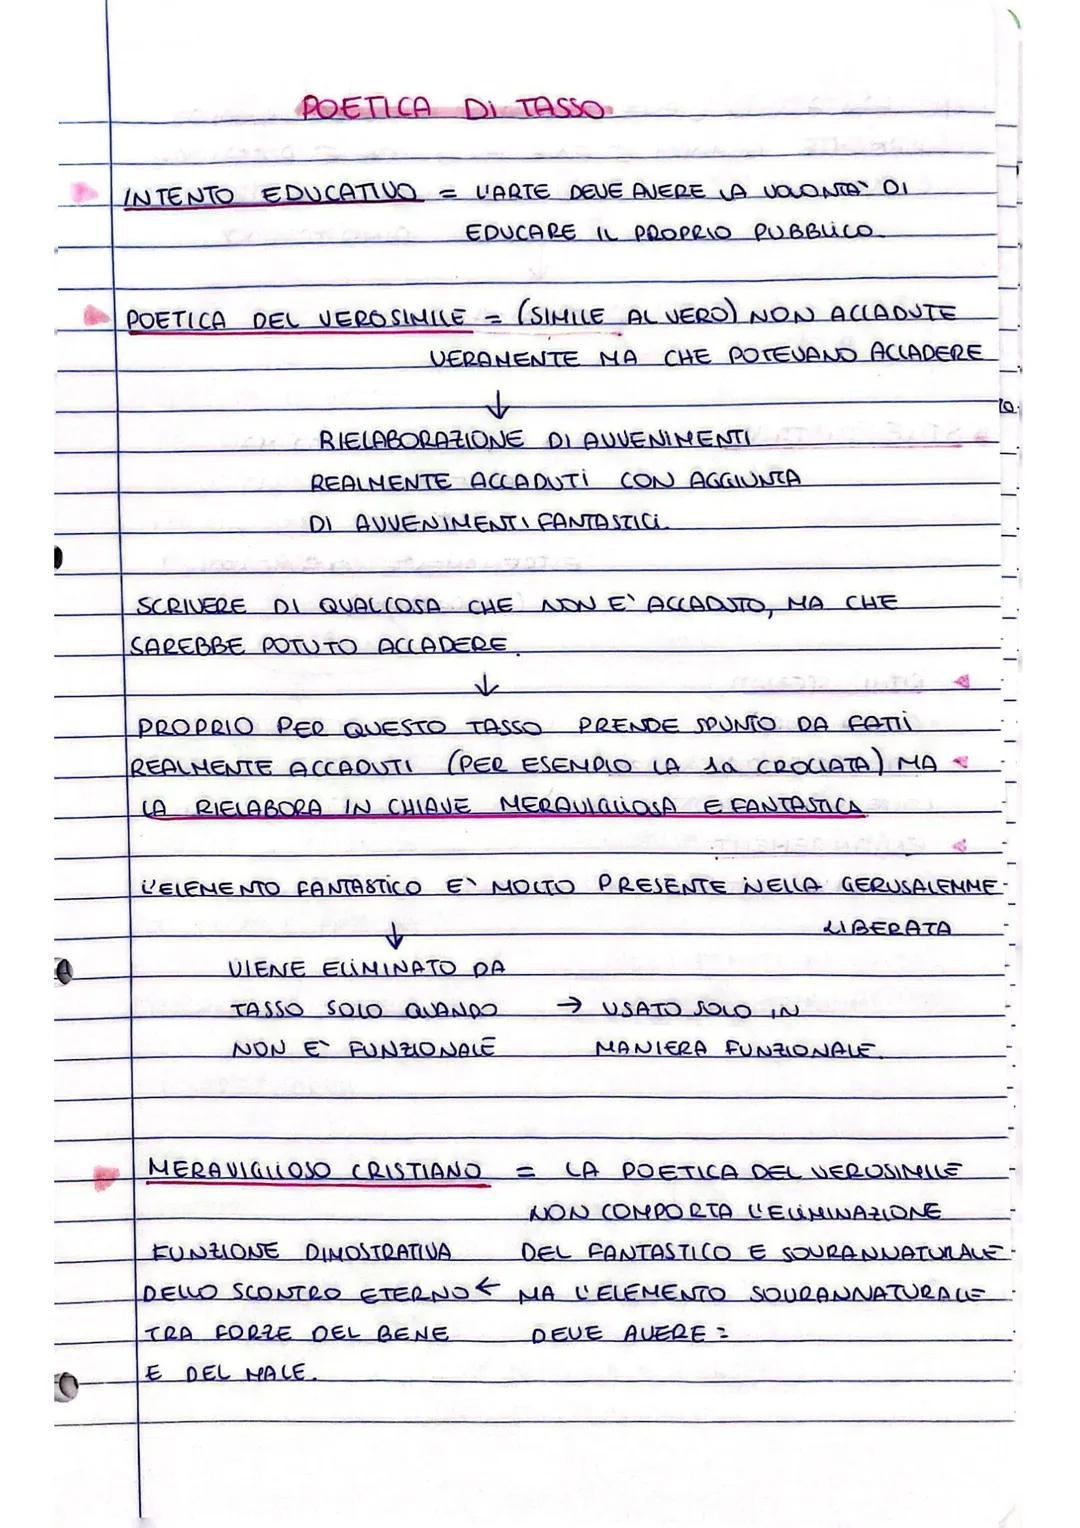 POETICA Di TASSO
INTENTO EDUCATIVO = L'ARTE DEVE AVERE LA VOLONTA' DI
EDUCARE IL PROPRIO PUBBLICO.
POETICA DEL VEROSIMILE = (SIMILE AL VERO) NON ACCADUTE
VERAMENTE MA CHE POTEVANO ACCADERE
↓
RIELABORAZIONE DI AVVENIMENTI
REALMENTE ACCADUTi CON AGGIUNTA
DI AVVENIMENTI FANTASTICi.
SCRIVERE DI QUALCOSA CHE NON E' ACCADUTO, MA CHE
SAREBBE POTUTO ACCADERE.
↓
PROPRIO PER QUESTO TASSO PRENDE SPUNTO DA FATTi
REALMENTE ACCADUTI (PER ESEMPIO LA 1a CROCIATA) MA
LA RIELABORA IN CHIAVE MERAVIGLIOSA E FANTASTICA
L'ELEMENTO FANTASTICO E' MOLTO PRESENTE NELLA GERUSALEMME
LIBERATA
↓
VIENE ELIMINATO DA
TASSO SOLO QUANDO → USATO SOLO IN
NON E' FUNZIONALE MANIERA FUNZIONALE.
MERAVIGLIOSO CRISTIANO = LA POETICA DEL VEROSIMILE
NON COMPORTA L'ELIMINAZIONE
FUNZIONE DIMOSTRATIVA DEL FANTASTICO E SOVRANNATURALE
DELLO SCONTRO ETERNO ← MA L'ELEMENTO SOVRANNATURALE
TRA FORZE DEL BENE DEVE AVERE =
E DEL MALE.